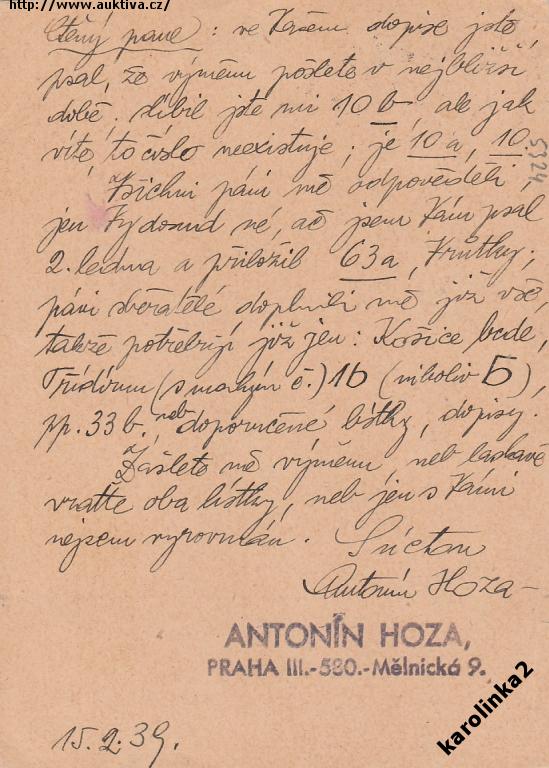 http://www.auktiva.cz/
Ctěný pane: ve Vašem dopise jste
psal, že výměnu pošlete v nejbližší
době. Slíbil jste mi 10 b, ale jak
víte, to číslo neexistuje; je 10 a, 10.
5324
Všichni páni mě odpověděli,
jen Vy dosud ne, ač jsem Vám psal
2. ledna a přiložil 63a, Vrútky;
páni sběratelé doplnili mě již vše,
takže potřebuji již jen: Košice bude,
Třídvorm (s malým č.) 1b (nikoliv 5),
pp. 33 b. neb doporučené lístky, dopisy.
Zašlete mě výměnu, neb laskavě
vraťte oba lístky, neb jen s Vámi
nejsem vyrovnán. S úctou
Antonín Hoza
ANTONÍN HOZA,
PRAHA III.-580.-Mělnická 9.
15.2.39.
karolinka2